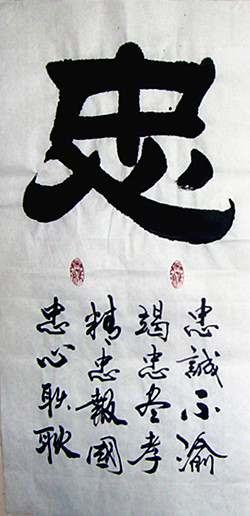 忠
忠誠不渝
竭忠尽孝
精忠報國
忠心耿耿